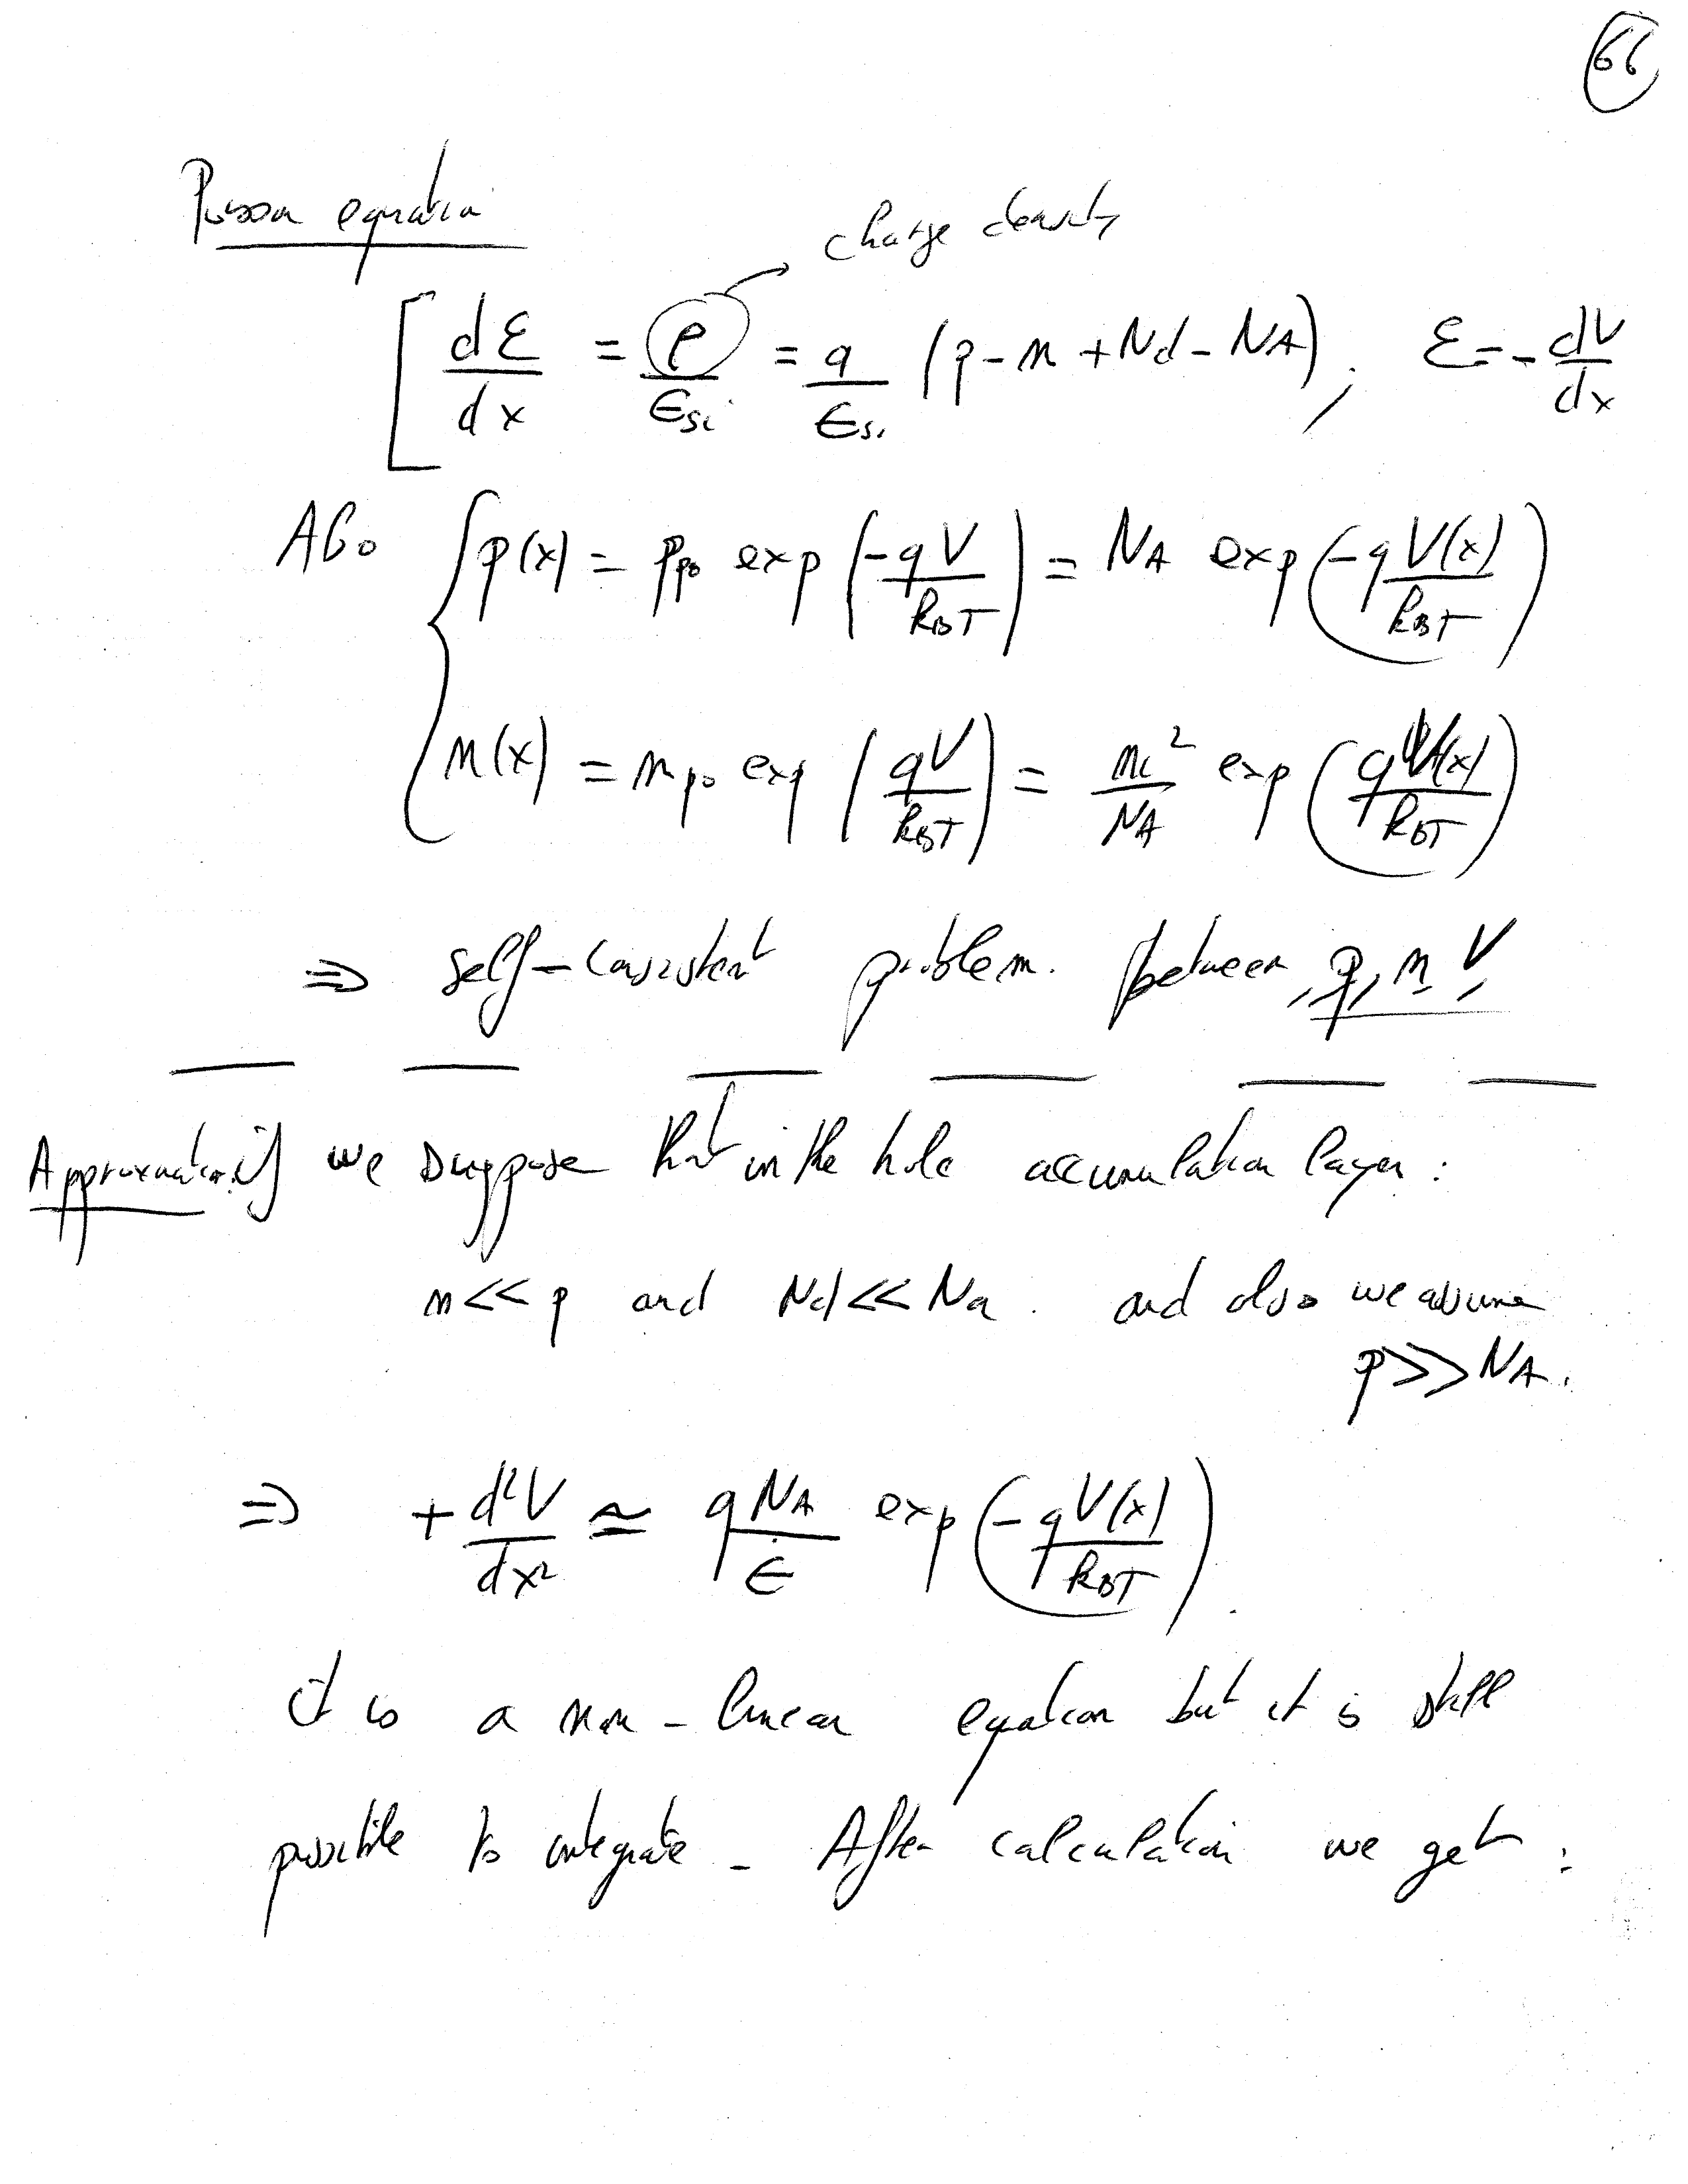 66
Poisson equation
charge density
[ dℰ/dx = ρ/ϵsi = q/ϵsi (p - n + Nd - NA) , ℰ = - dV/dx
Also { p(x) = ppo exp (-qV/kBT) = NA exp (-qV(x)/kBT)
n(x) = npo exp (qV/kBT) = ni²/NA exp (qV(x)/kBT)
⇒ self-consistent problem. between, p, n, V
Approximation: if we suppose that in the hole accumulation layer :
n << p and Nd << Na . and also we assume
p >> NA .
⇒ + d²V/dx² ≃ qNA/ϵ exp (-qV(x)/kBT) .
it is a non-linear equation but it is still
possible to integrate - After calculation we get :